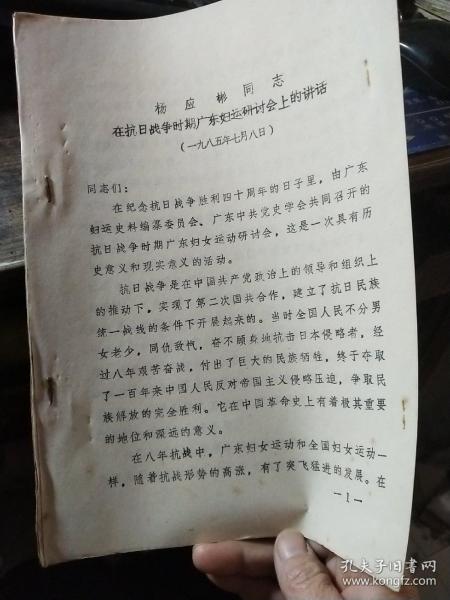 杨应彬同志
在抗日战争时期广东妇运研讨会上的讲话
（一九八五年七月八日）
同志们：
在纪念抗日战争胜利四十周年的日子里，由广东
妇运史料编纂委员会、广东中共党史学会共同召开的
抗日战争时期广东妇女运动研讨会，这是一次具有历
史意义和现实意义的活动。
抗日战争是在中国共产党政治上的领导和组织上
的推动下，实现了第二次国共合作，建立了抗日民族
统一战线的条件下开展起来的。当时全国人民不分男
女老少，同仇敌忾，奋不顾身地抗击日本侵略者，经
过八年艰苦奋战，付出了巨大的民族牺牲，终于夺取
了一百年来中国人民反对帝国主义侵略压迫，争取民
族解放的完全胜利。它在中国革命史上有着极其重要
的地位和深远的意义。
在八年抗战中，广东妇女运动和全国妇女运动一
样，随着抗战形势的高涨，有了突飞猛进的发展。在
—1—
孔夫子旧书网
www.kongfz.com